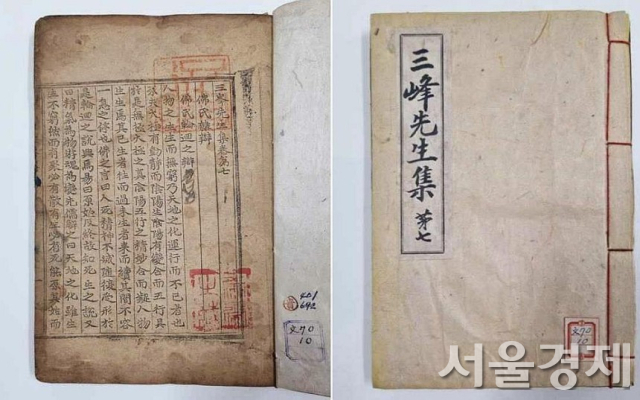 三峯先生集卷七
佛氏雜辨
佛氏輪迴之辨
人物之生生而無窮乃天地之化運行而不已者也
原夫太極有動靜而陰陽生陰陽有變合而五行具
於是無極太極之眞陰陽五行之精妙合而凝人物
生生焉其已生者往而過未生者來而續其間不容
一息之停也佛之言曰人死精神不滅隨復受形於
是輪迴之說興焉易曰原始反終故知死生之說又
曰精氣爲物游魂爲變先儒解之曰天地之化雖生
生不窮然而有聚必有散有生必有死能原其始而
文70
10
三峰先生集 苐七
文70
10
서울경제